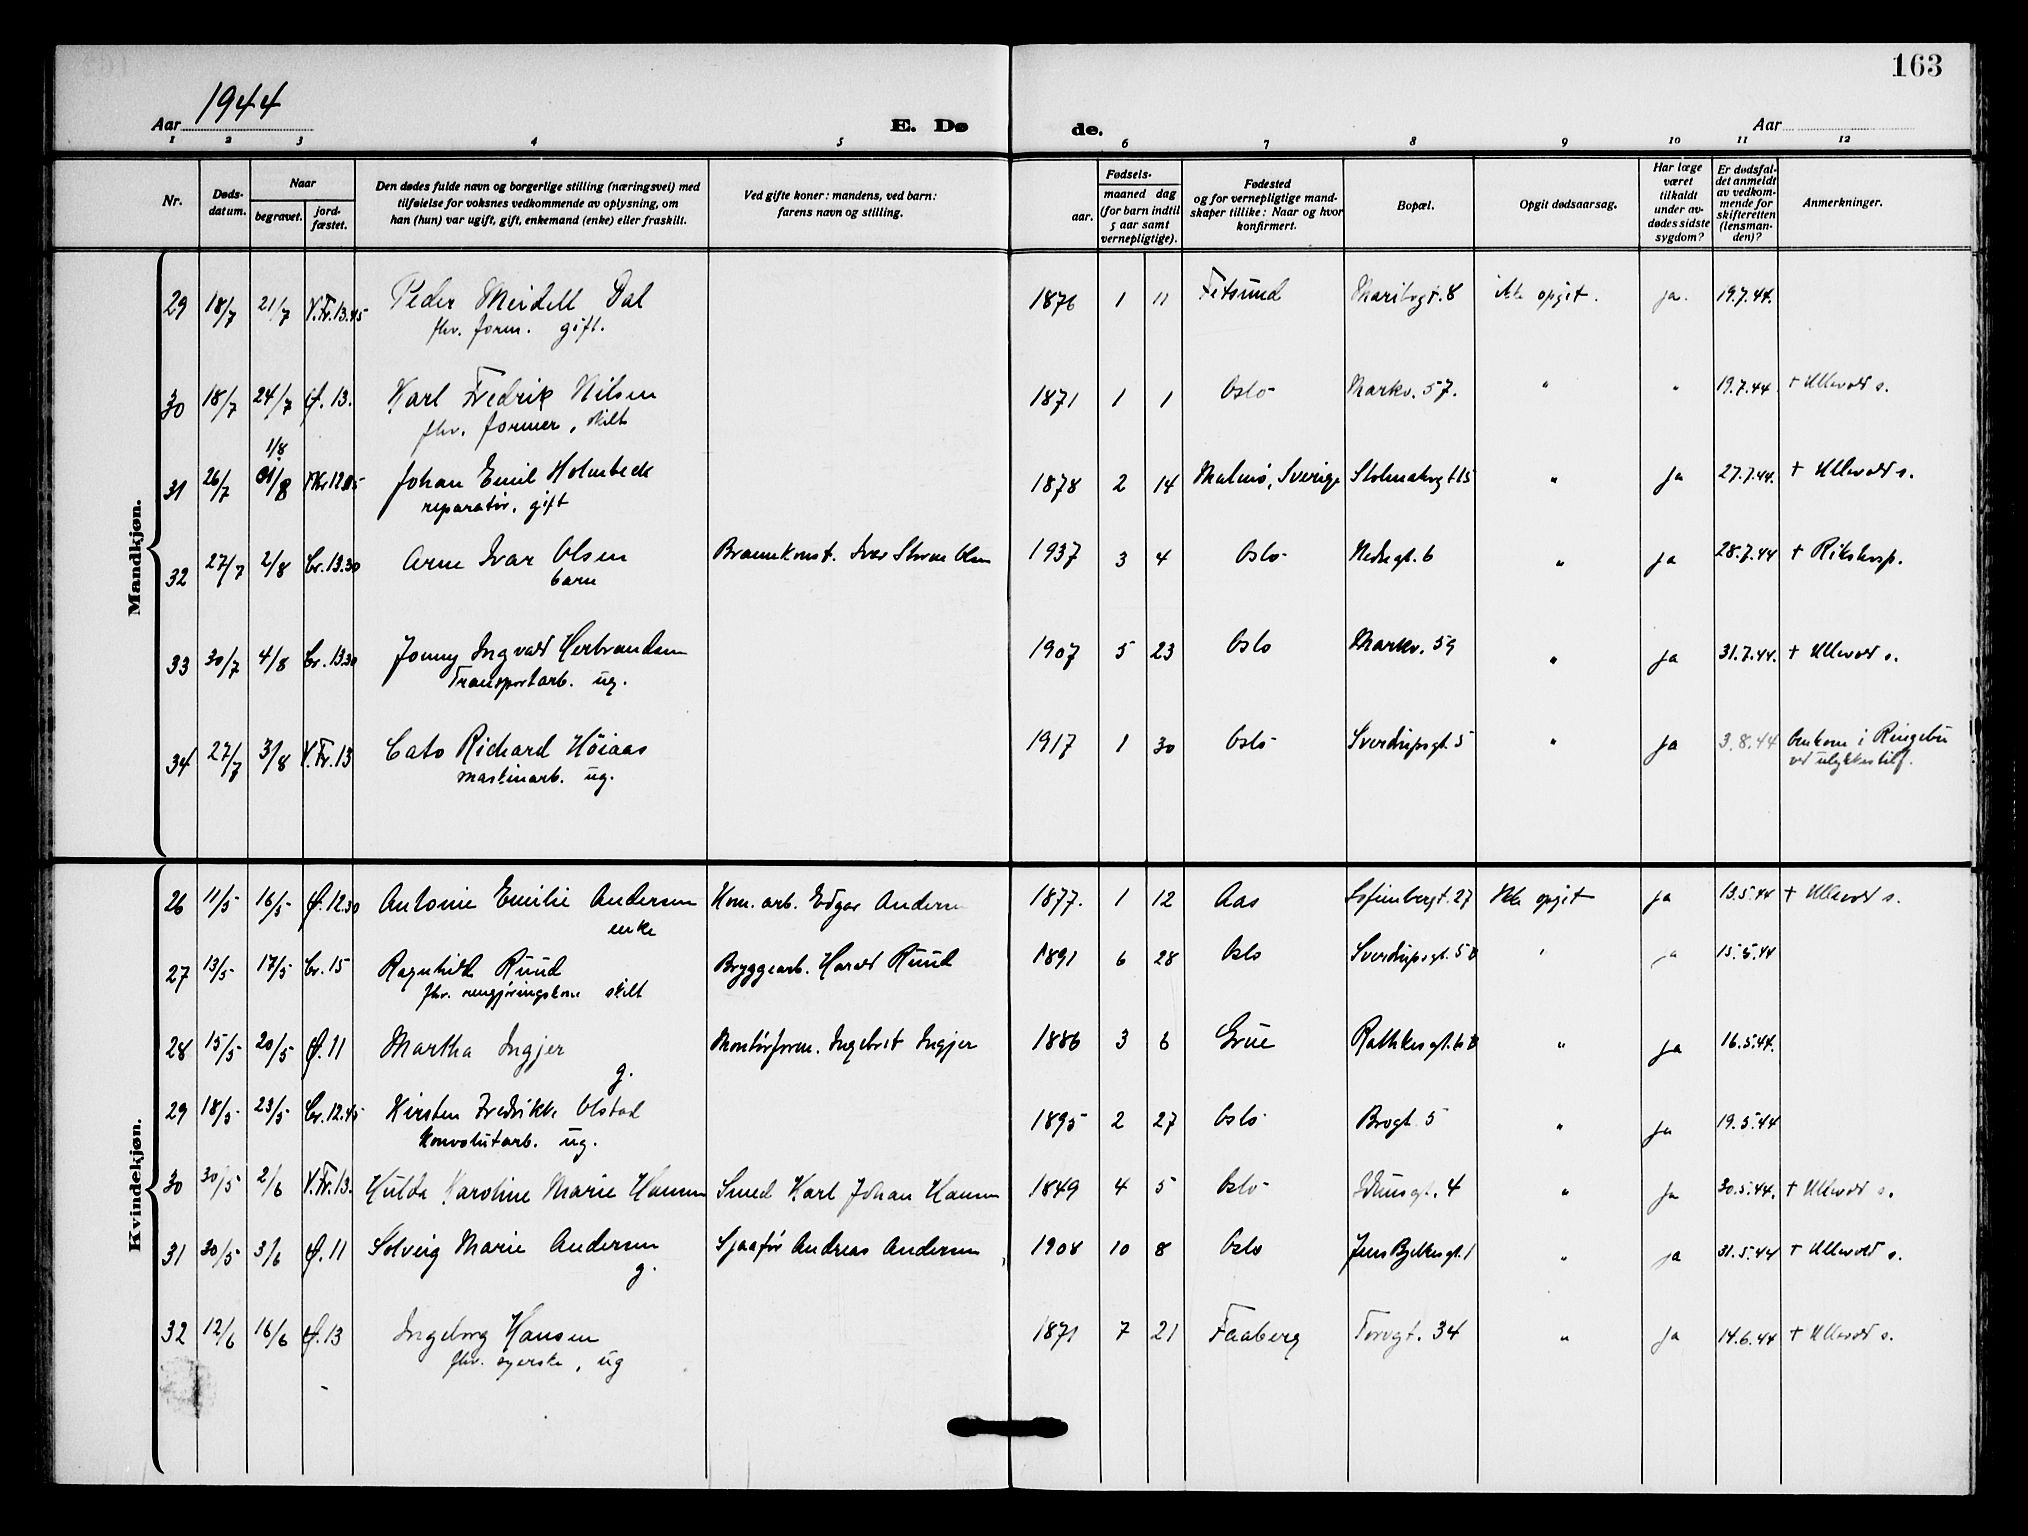 163
Aar 1944
E. Dø
de.
Aar
1 2 3 4 5 6 7 8 9 10 11 12
Nr.
Døds-
datum.
Naar
begravet.
jord-
fæstet.
Den dødes fulde navn og borgerlige stilling (næringsvei) med
tilføielse for voksnes vedkommende av oplysning, om
han (hun) var ugift, gift, enkemand (enke) eller fraskilt.
Ved gifte koner: mandens, ved barn:
farens navn og stilling.
Fødsels-
aar.
maaned dag
(for barn indtil
5 aar samt
vernepligtige).
Fødested
og for vernepligtige mand-
skaper tillike: Naar og hvor
konfirmert.
Bopæl.
Opgit dødsaarsag.
Har læge
været
tilkaldt
under av-
dødes sidste
sygdom?
Er dødsfal-
det anmeldt
av vedkom-
mende for
skifteretten
(lensman-
den)?
Anmerkninger.
Mandkjøn.
29 18/7 21/7 V.Fr.13.45 Peder Meidell Dal 1876 1 11 Fetsund 8 ikke opgit. ja. 19.7.44.
fhv. form. gift.
30 18/7 24/7 Ø. 13. Karl Fredrik Nilsen 1871 1 1 Oslo Markv. 57. " " 19.7.44 + Ullevål s.
fhv. former, skilt
1/8
31 26/7 Johan Emil Holmbeck 1878 2 14 Malmö, Sverige 15 " ja 27.7.44. + Ullevål s.
reparatør, gift
32 27/7 2/8 Cr. 13.30 Arne Ivar Olsen Olsen 1937 3 4 Oslo 6 " ja 28.7.44 + Rikshosp.
barn
33 30/7 4/8 Cr. 13.30 Jonny Ingvald Herbrandsen 1907 5 23 Oslo Markv. 59 " ja 31.7.44. + Ullevål s.
Transportarb. ug.
34 27/7 3/8 V.Fr.13 Cato Richard Høiaas 1917 1 30 Oslo Sverdrupsgt. 5 " ja 3.8.44 Omkom i Ringebu
maskinarb. ug. ved ulykkestilf.
Kvindekjøn.
26 11/5 16/5 Ø.12.30 Antonie Emilie Andersen Kom. arb. Edgar Andersen 1877. 1 12 Aas 27 Ikke opgit ja 13.5.44 + Ullevål s.
enke
27 13/5 17/5 Cr. 15 Ragnhild Ruud Bryggearb. Harald Ruud 1891 6 28 Oslo Sverdrupsgt. 5 B " ja 15.5.44
fhv. rengjøringskone skilt
28 15/5 20/5 Ø. 11 Martha Ingjer Montørform. Ingebret Ingjer 1886 3 6 Grue Rathkesgt. " ja 16.5.44.
g.
29 18/5 23/5 Cr. 12.45 Kirsten Fredrikke Olstad 1895 2 27 Oslo Brogt. 5 " ja 19.5.44
Konvolutarb. ug.
30 30/5 2/6 V.Fr.13. Hulda Karoline Marie Hansen Smed Karl Johan Hansen 1849 4 5 Oslo Idunsgt. 4 " ja 30.5.44. + Ullevål s.
31 30/5 3/6 Ø. 11 Solveig Marie Andersen Sjaafør Andreas Andersen 1908 10 8 Oslo Jens Bjelkesgt. 1 " ja 31.5.44 + Ullevål s.
g.
32 12/6 16/6 Ø. 13 Ingeborg Hansen 1871 7 21 Faaberg Torvgt. 34 " ja 14.6.44 + Ullevål s.
fhv. syerske, ug